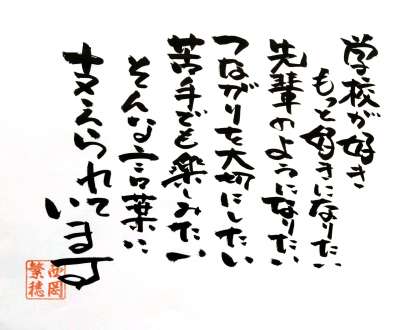 学校が好き
もっと好きになりたい
先輩のようになりたい
つながりを大切にしたい
苦手でも楽しみたい
そんな言葉に
支えられて
います
西岡
繁穂